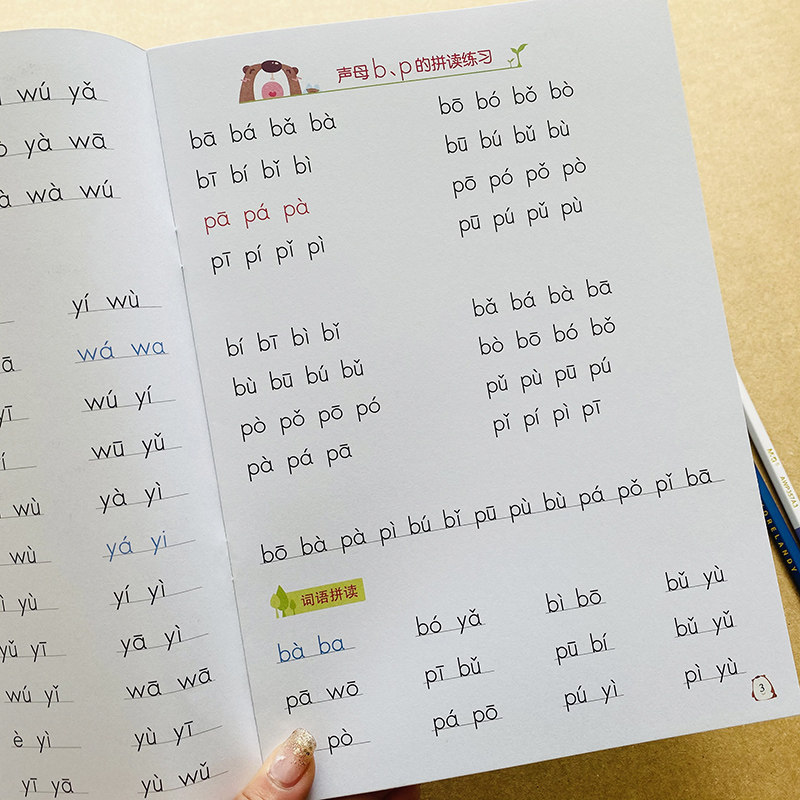 wú yǎ
yà wā
wà wú
yí wù
wá wa
yī wú yí
wū yǔ
wù yà yì
wù yá yi
yù yí yì
yǔ yī yā yì
wú yǐ wā wā
è yì yù yī
yī yā yù wǔ
声母b、p的拼读练习
bā bá bǎ bà
bī bí bǐ bì
pā pá pà
pī pí pǐ pì
bō bó bǒ bò
bū bú bǔ bù
pō pó pǒ pò
pū pú pǔ pù
bí bī bì bǐ
bù bū bú bǔ
pò pǒ pō pó
pà pá pā
bǎ bá bà bā
bò bō bó bǒ
pǔ pù pū pú
pǐ pí pì pī
bō bà pà pì bú bǐ pū pù bù pá pǒ pǐ bā
词语拼读
bà ba bó yǎ bì bō bǔ yù
pā wō pī bǔ pū bí bǔ yǔ
pò pá pō pú yì pì yù
3
M&G AWP357A3